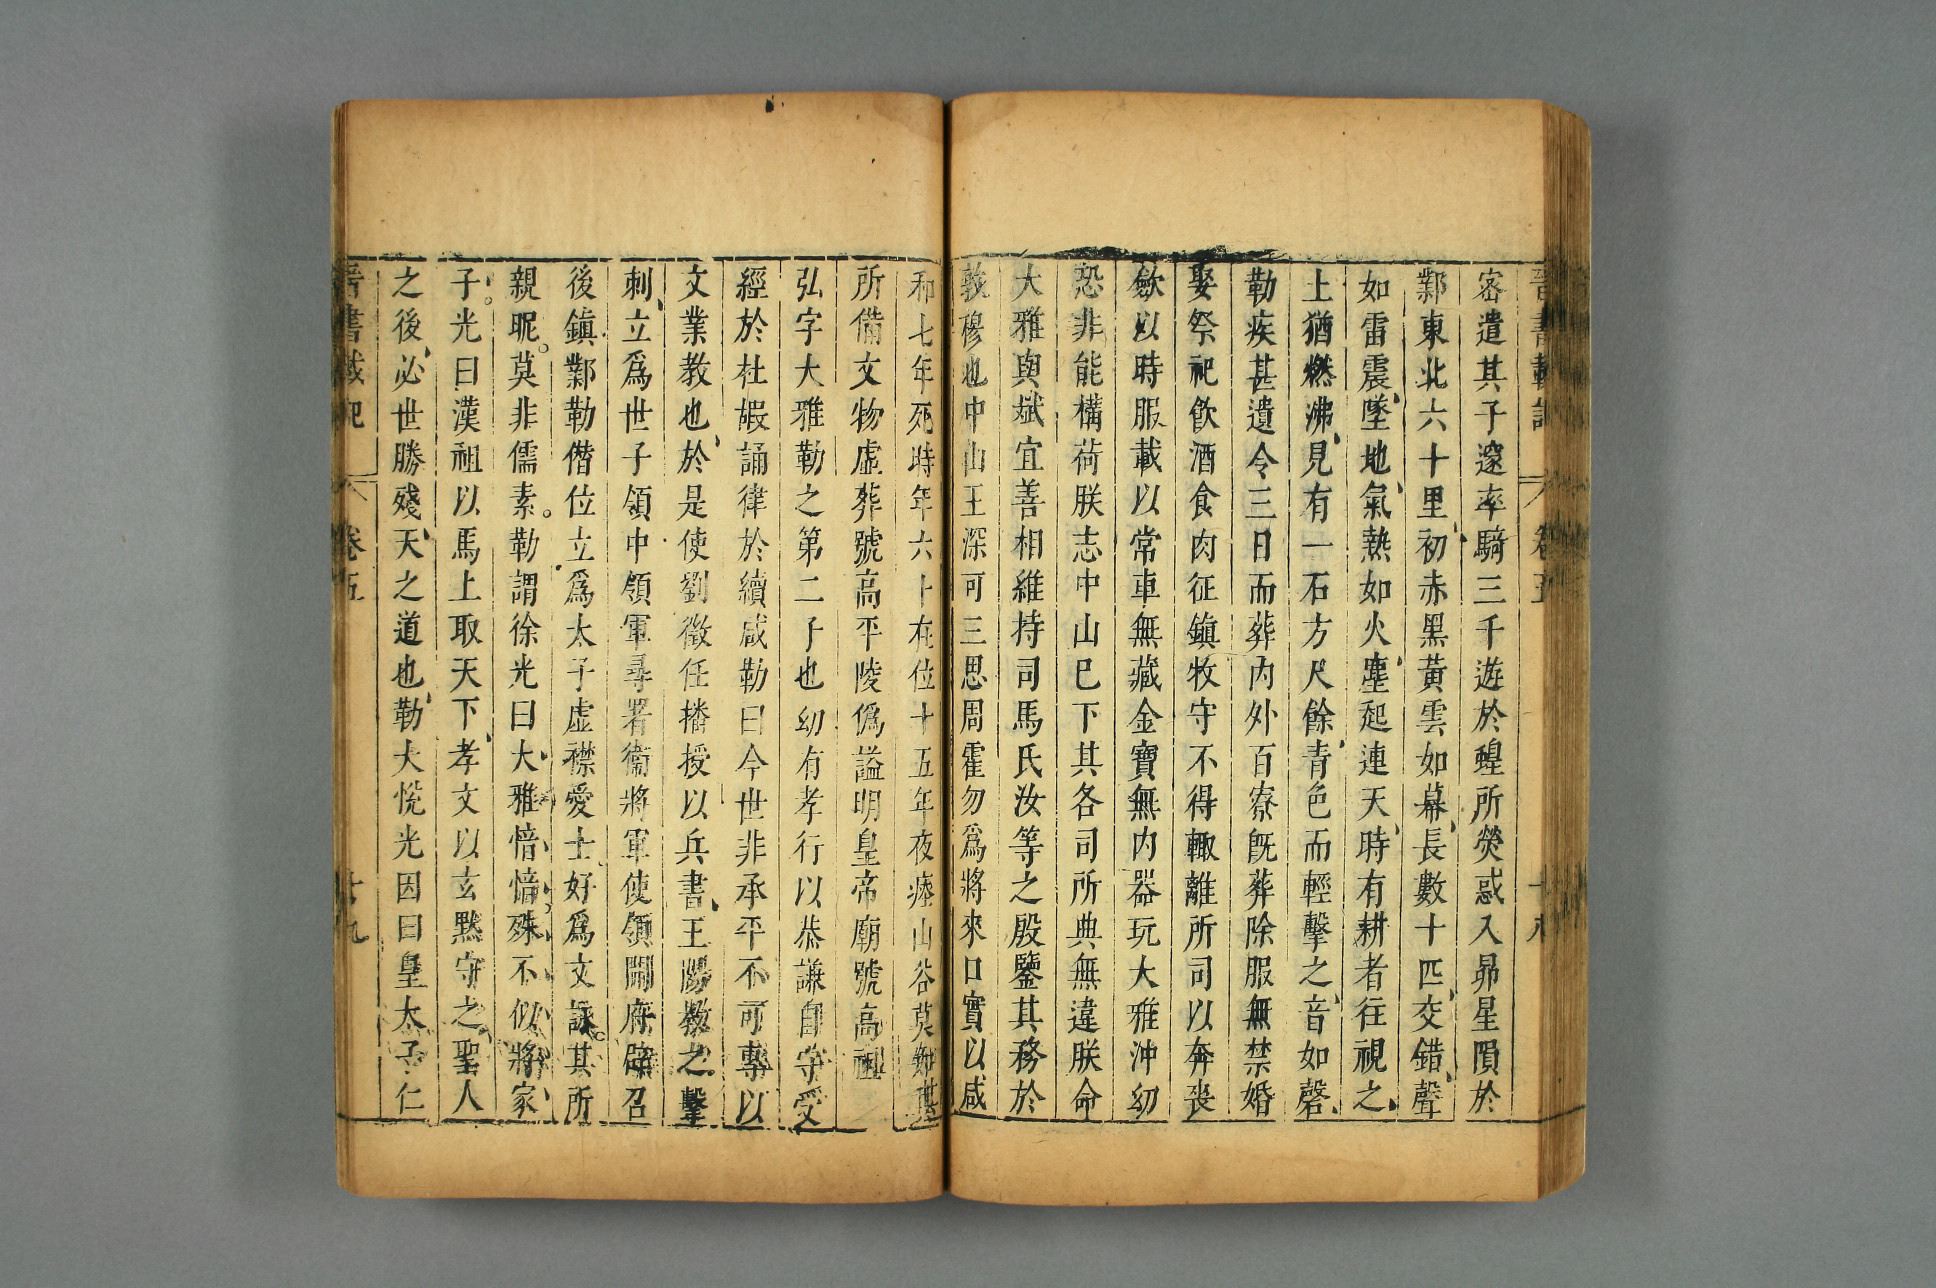 晉書載記 卷五 十八
密遣其子邃率騎三千遊於蝗所熒惑入昴星隕於
鄴東北六十里初赤黑黃雲如幕長數十匹交錯聲
如雷震墜地氣熱如火塵起連天時有耕者往視之
土猶燃沸見有一石方尺餘青色而輕擊之音如磬
勒疾甚遺令三日而葬內外百寮旣葬除服無禁婚
娶祭祀飲酒食肉征鎮牧守不得輙離所司以奔喪
歛以時服載以常車無藏金寶無內器玩大雅沖幼
恐非能構荷朕志中山巳下其各司所典無違朕命
大雅與斌宜善相維持司馬氏汝等之殷鑒其務於
敦穆也中山王深可三思周霍勿爲將來口實以咸
和七年死時年六十在位十五年夜瘞山谷莫知其
所備文物虛葬號高平陵僞謚明皇帝廟號高祖
弘字大雅勒之第二子也幼有孝行以恭謙自守受
經於杜嘏誦律於續咸勒曰今世非承平不可專以
文業教也於是使劉徵任播授以兵書王陽教之擊
刺立爲世子領中領軍尋署衞將軍使領開府辟召
後鎮鄴勒僭位立爲太子虛襟愛士好爲文詠其所
親昵莫非儒素勒謂徐光曰大雅愔愔殊不似將家
子光曰漢祖以馬上取天下孝文以玄默守之聖人
之後必世勝殘天之道也勒大悅光因曰皇太子仁
晉書載記 卷五 十九